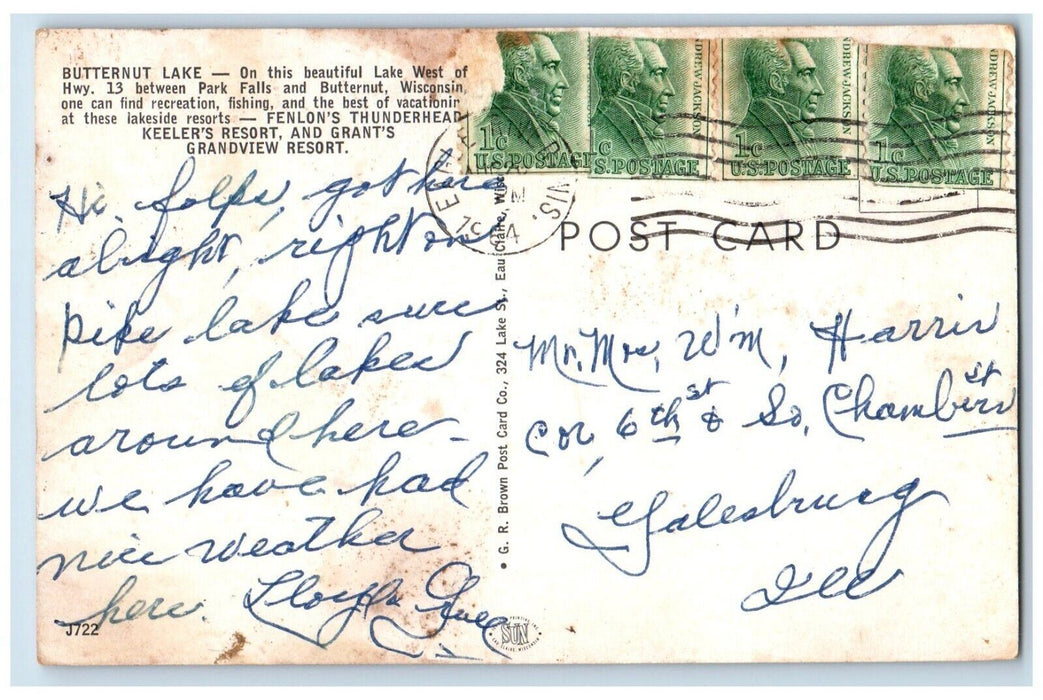 BUTTERNUT LAKE — On this beautiful Lake West of
Hwy. 13 between Park Falls and Butternut, Wisconsin,
one can find recreation, fishing, and the best of vacationin
at these lakeside resorts — FENLON'S THUNDERHEAD
KEELER'S RESORT, AND GRANT'S
GRANDVIEW RESORT.
Hi folks, got here
alright, right on
pike lake sure
lots of lakes
around here –
we have had
nice weather
here. Lloyd
J722
• G. R. Brown Post Card Co., 324 Lake St., Eau Claire, Wisc
1c
U.S. POSTAGE
c
S. POSTAGE
ANDREW JACKSON
1c
U.S. POSTAGE
NDREW JACKSON
1c
U.S. POSTAGE
DREW JACKSON
WIS.
PM
POST CARD
Mr. Mrs, Wm, Harris
Cor, 6th st & So, Chambers st
Galesburg
Ill
SUN